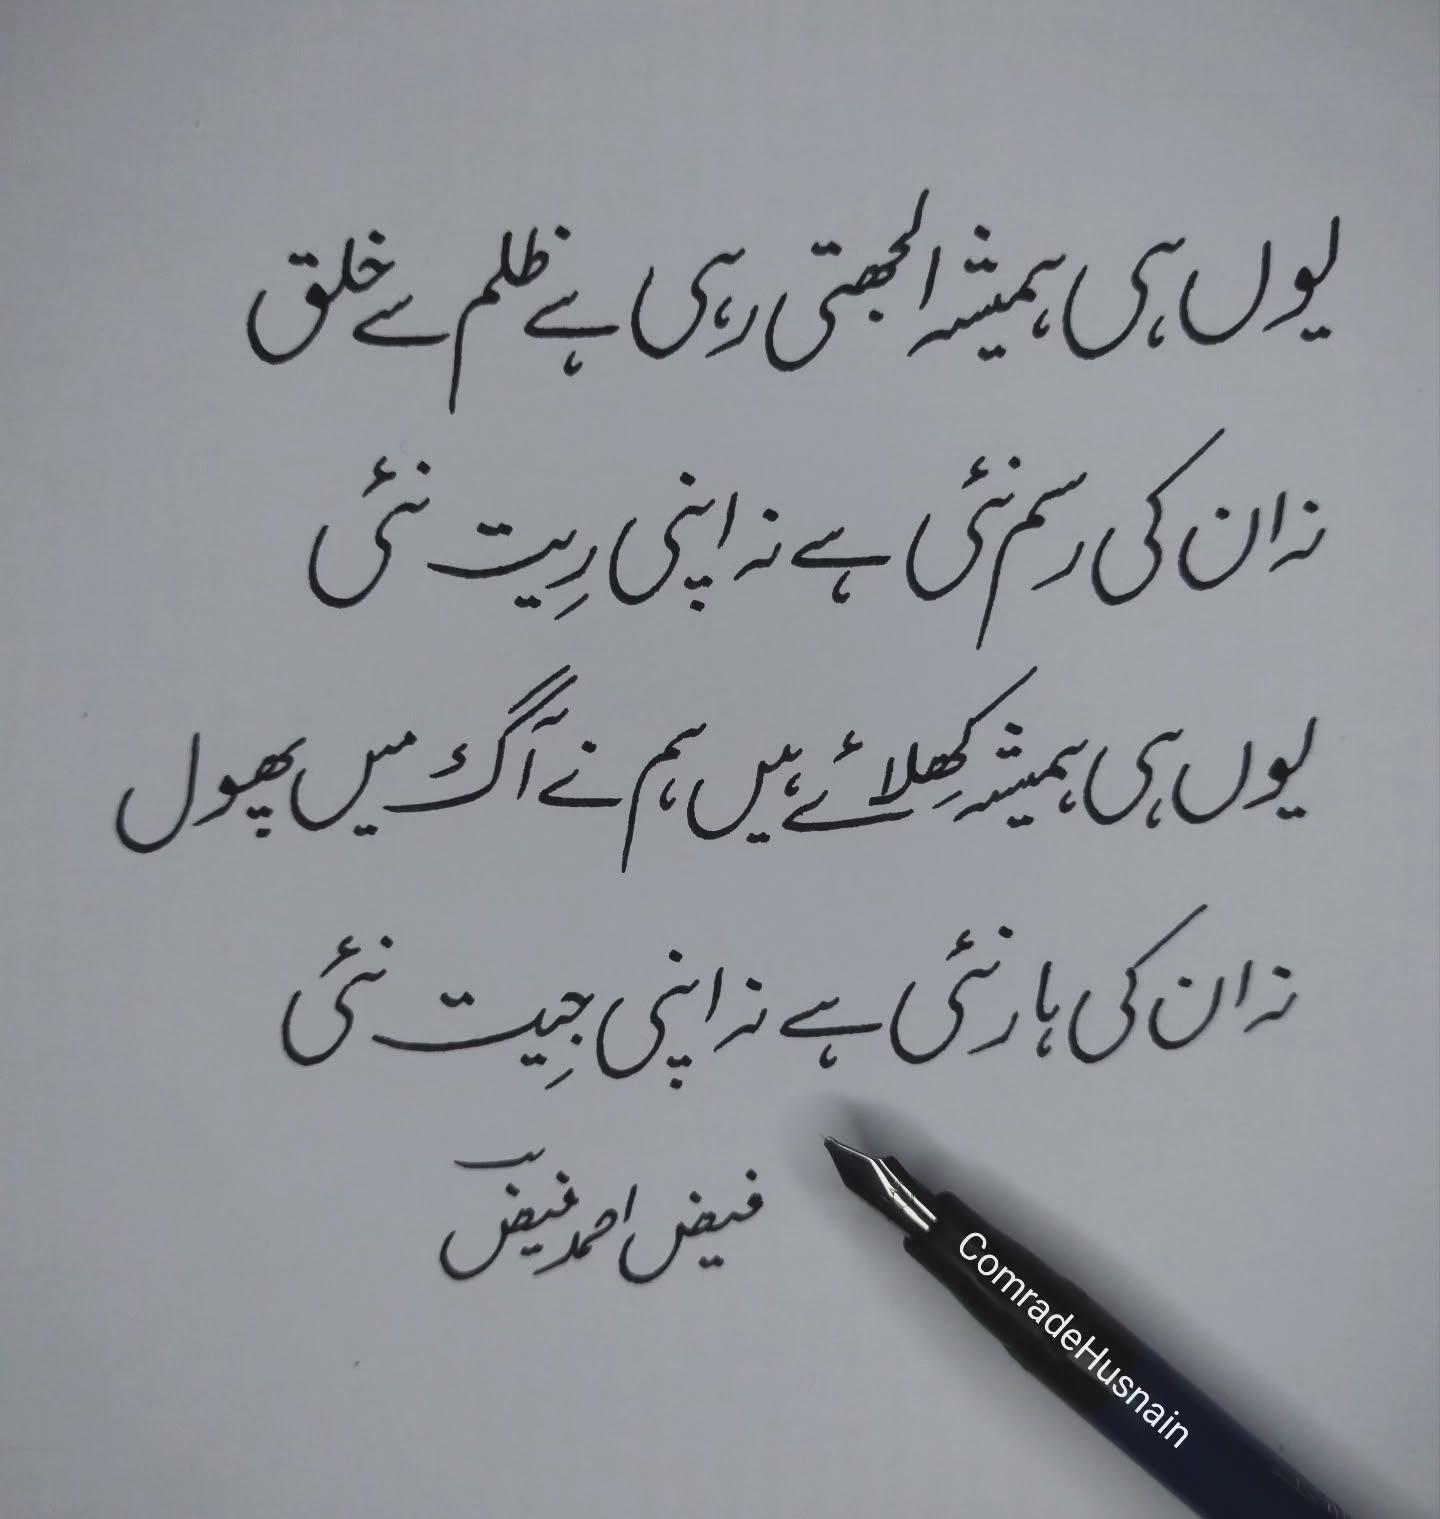 یوں ہی ہمیشہ الجھتی رہی ہے ظلم سے خلق
نہ ان کی رسم نئی ہے نہ اپنی رِیت نئی
یوں ہی ہمیشہ کھِلائے ہیں ہم نے آگ میں پھول
نہ ان کی ہار نئی ہے نہ اپنی جِیت نئی
فیض احمد فیضؔ
ComradeHusnain